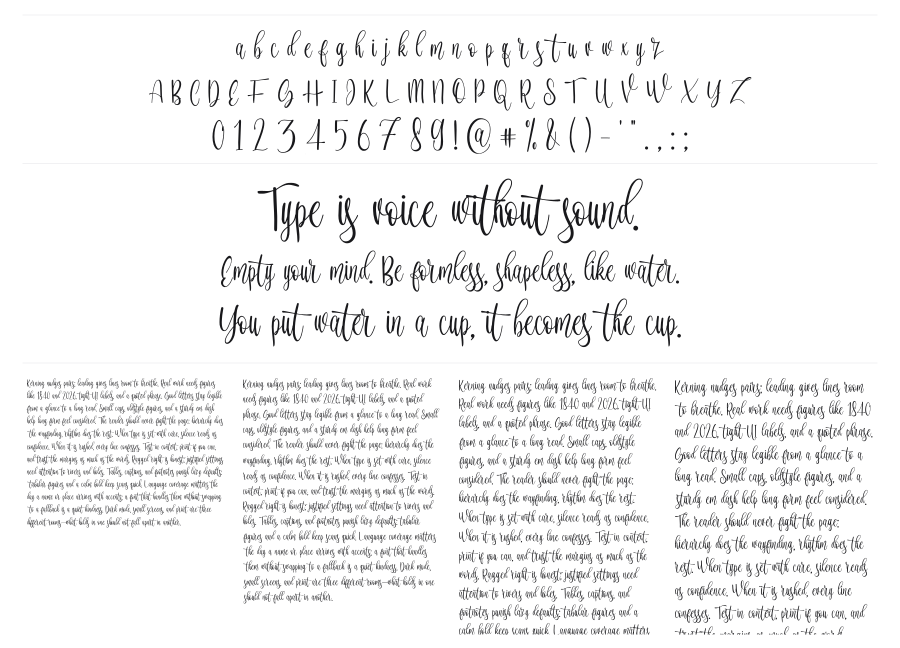 a b c d e f g h i j k l m n o p q r s t u v w x y z
A B C D E F G H I J K L M N O P Q R S T U V W X Y Z
0 1 2 3 4 5 6 7 8 9 ! @ # % & ( ) - ' " . , : ;
Type is voice without sound.
Empty your mind. Be formless, shapeless, like water.
You put water in a cup, it becomes the cup.
Kerning nudges pairs; leading gives lines room to breathe. Real work needs figures
like 18:40 and 2026, tight UI labels, and a quoted phrase. Good letters stay legible
from a glance to a long read. Small caps, oldstyle figures, and a sturdy em dash
help long form feel considered. The reader should never fight the page; hierarchy does
the wayfinding, rhythm does the rest. When type is set with care, silence reads as
confidence. When it is rushed, every line confesses. Test in context, print if you can,
and trust the margins as much as the words. Ragged right is honest; justified settings
need attention to rivers and holes. Tables, captions, and footnotes punish lazy defaults;
tabular figures and a calm bold keep scans quick. Language coverage matters the
day a name or place arrives with accents; a font that handles them without swapping
to a fallback is a quiet kindness. Dark mode, small screens, and print are three
different rooms—what holds in one should not fall apart in another.
Kerning nudges pairs; leading gives lines room to breathe. Real work
needs figures like 18:40 and 2026, tight UI labels, and a quoted
phrase. Good letters stay legible from a glance to a long read. Small
caps, oldstyle figures, and a sturdy em dash help long form feel
considered. The reader should never fight the page; hierarchy does the
wayfinding, rhythm does the rest. When type is set with care, silence
reads as confidence. When it is rushed, every line confesses. Test in
context, print if you can, and trust the margins as much as the words.
Ragged right is honest; justified settings need attention to rivers and
holes. Tables, captions, and footnotes punish lazy defaults; tabular
figures and a calm bold keep scans quick. Language coverage matters
the day a name or place arrives with accents; a font that handles
them without swapping to a fallback is a quiet kindness. Dark mode,
small screens, and print are three different rooms—what holds in one
should not fall apart in another.
Kerning nudges pairs; leading gives lines room to breathe.
Real work needs figures like 18:40 and 2026, tight UI
labels, and a quoted phrase. Good letters stay legible
from a glance to a long read. Small caps, oldstyle
figures, and a sturdy em dash help long form feel
considered. The reader should never fight the page;
hierarchy does the wayfinding, rhythm does the rest.
When type is set with care, silence reads as confidence.
When it is rushed, every line confesses. Test in context,
print if you can, and trust the margins as much as the
words. Ragged right is honest; justified settings need
attention to rivers and holes. Tables, captions, and
footnotes punish lazy defaults; tabular figures and a
calm bold keep scans quick. Language coverage matters
Kerning nudges pairs; leading gives lines room
to breathe. Real work needs figures like 18:40
and 2026, tight UI labels, and a quoted phrase.
Good letters stay legible from a glance to a
long read. Small caps, oldstyle figures, and a
sturdy em dash help long form feel considered.
The reader should never fight the page;
hierarchy does the wayfinding, rhythm does the
rest. When type is set with care, silence reads
as confidence. When it is rushed, every line
confesses. Test in context, print if you can, and
trust the margins as much as the words.